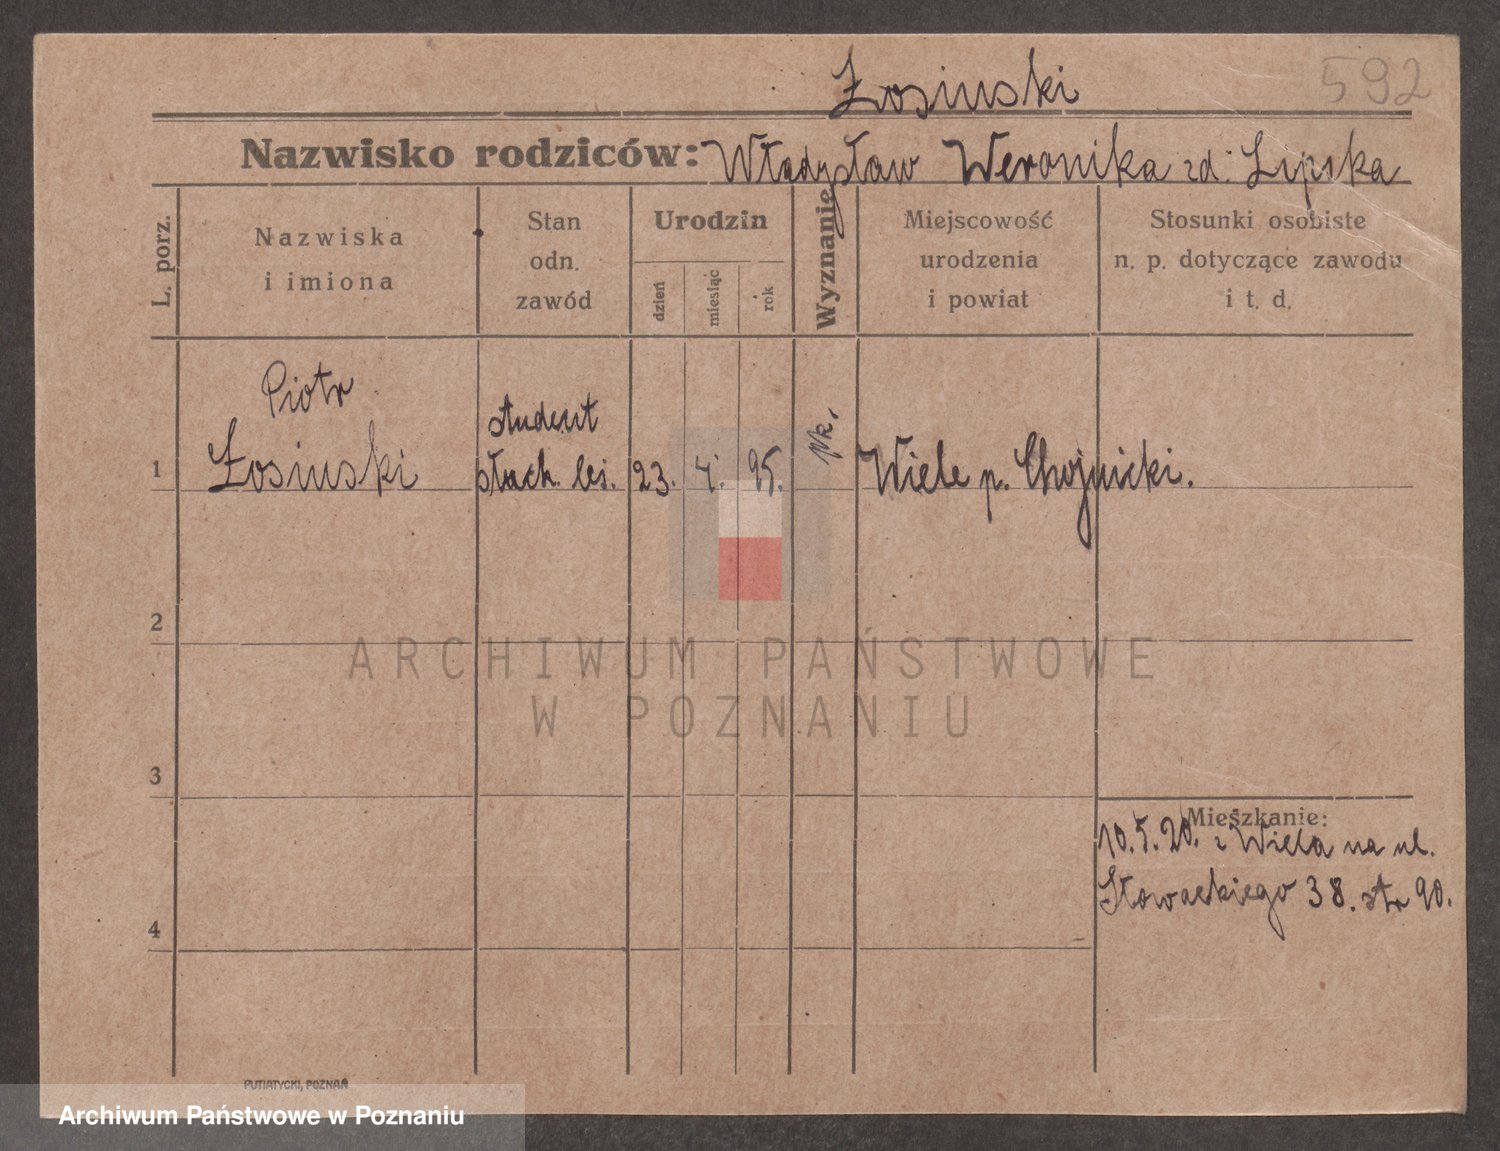 Łosinski
592
Nazwisko rodziców: Władysław Weronika zd: Lipska
L. porz.
Nazwiska
i imiona
Stan
odn.
zawód
Urodzin
dzień
miesiąc
rok
Wyznanie
Miejscowość
urodzenia
i powiat
Stosunki osobiste
n. p. dotyczące zawodu
i t. d.
Piotr
student
1 Łosinski słuch. leś. 23. 4. 95. rk. Wiele p. Chojnicki.
2
3
4
Mieszkanie:
10.5.20. z Wiela na ul.
Słowackiego 38. str 90.
PUTIATYCKI, POZNAŃ
ARCHIWUM PAŃSTWOWE
W POZNANIU
Archiwum Państwowe w Poznaniu